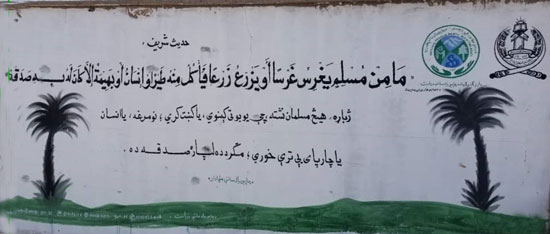 حديث شريف
مَا مِنْ مُسْلِمٍ يَغْرِسُ غَرْسًا أَوْ يَزْرَعُ زَرْعًا فَيَأْكُلُ مِنْهُ طَيْرٌ أَوْ إِنْسَانٌ أَوْ بَهِيمَةٌ إِلَّا كَانَ لَهُ بِهِ صَدَقَةٌ
ژباړه. هيڅ مسلمان نشته چي يو بوټی کښنوي، يا کښت کړي؛ نو مرغه، يا انسان
يا چارپای يې ترې خوري؛ مګر ده لپاره صدقه ده.